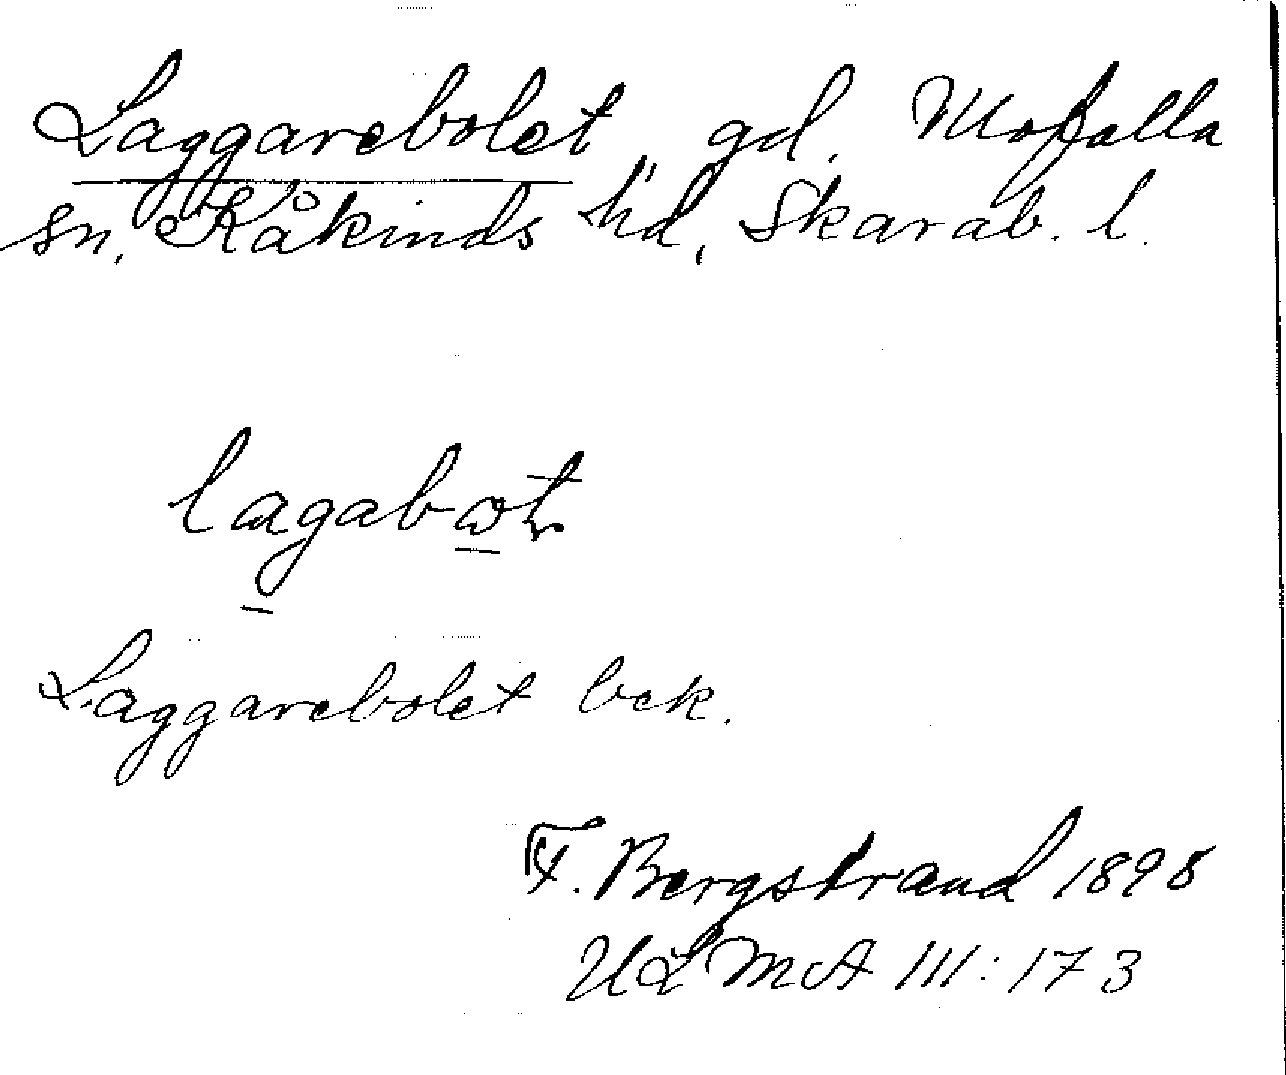 Laggarebolet, gd. Mofalla
sn, Kåkinds hd, Skarab. l.
lagabωt
Laggarebolet bek.
F. Bergstrand 1898
ULMA III:173